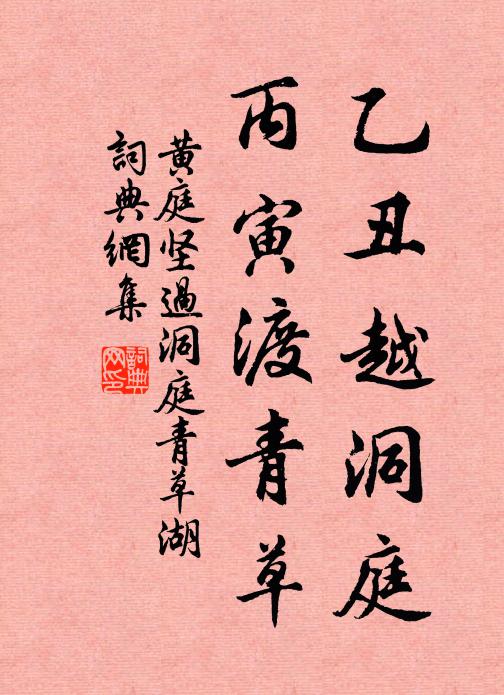 乙丑越洞庭
丙寅渡青草
黄庭坚過洞庭青草湖
詞典網集
詞典网印